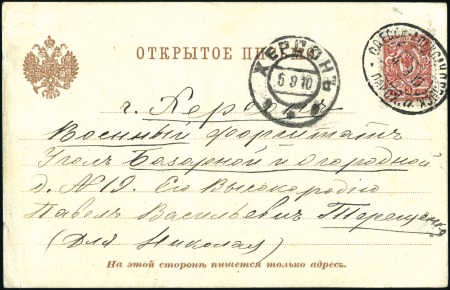 ОТКРЫТОЕ ПИСЬМО
ХЕРСОНЪ
5 9 10
г. Херсонъ
Военный Форштатъ
Уголъ Базарной и Огородной
д. № 12. Его Высокородію
Павелъ Васильевичъ Терещенко
(для Николая)
На этой сторонѣ пишется только адресъ.